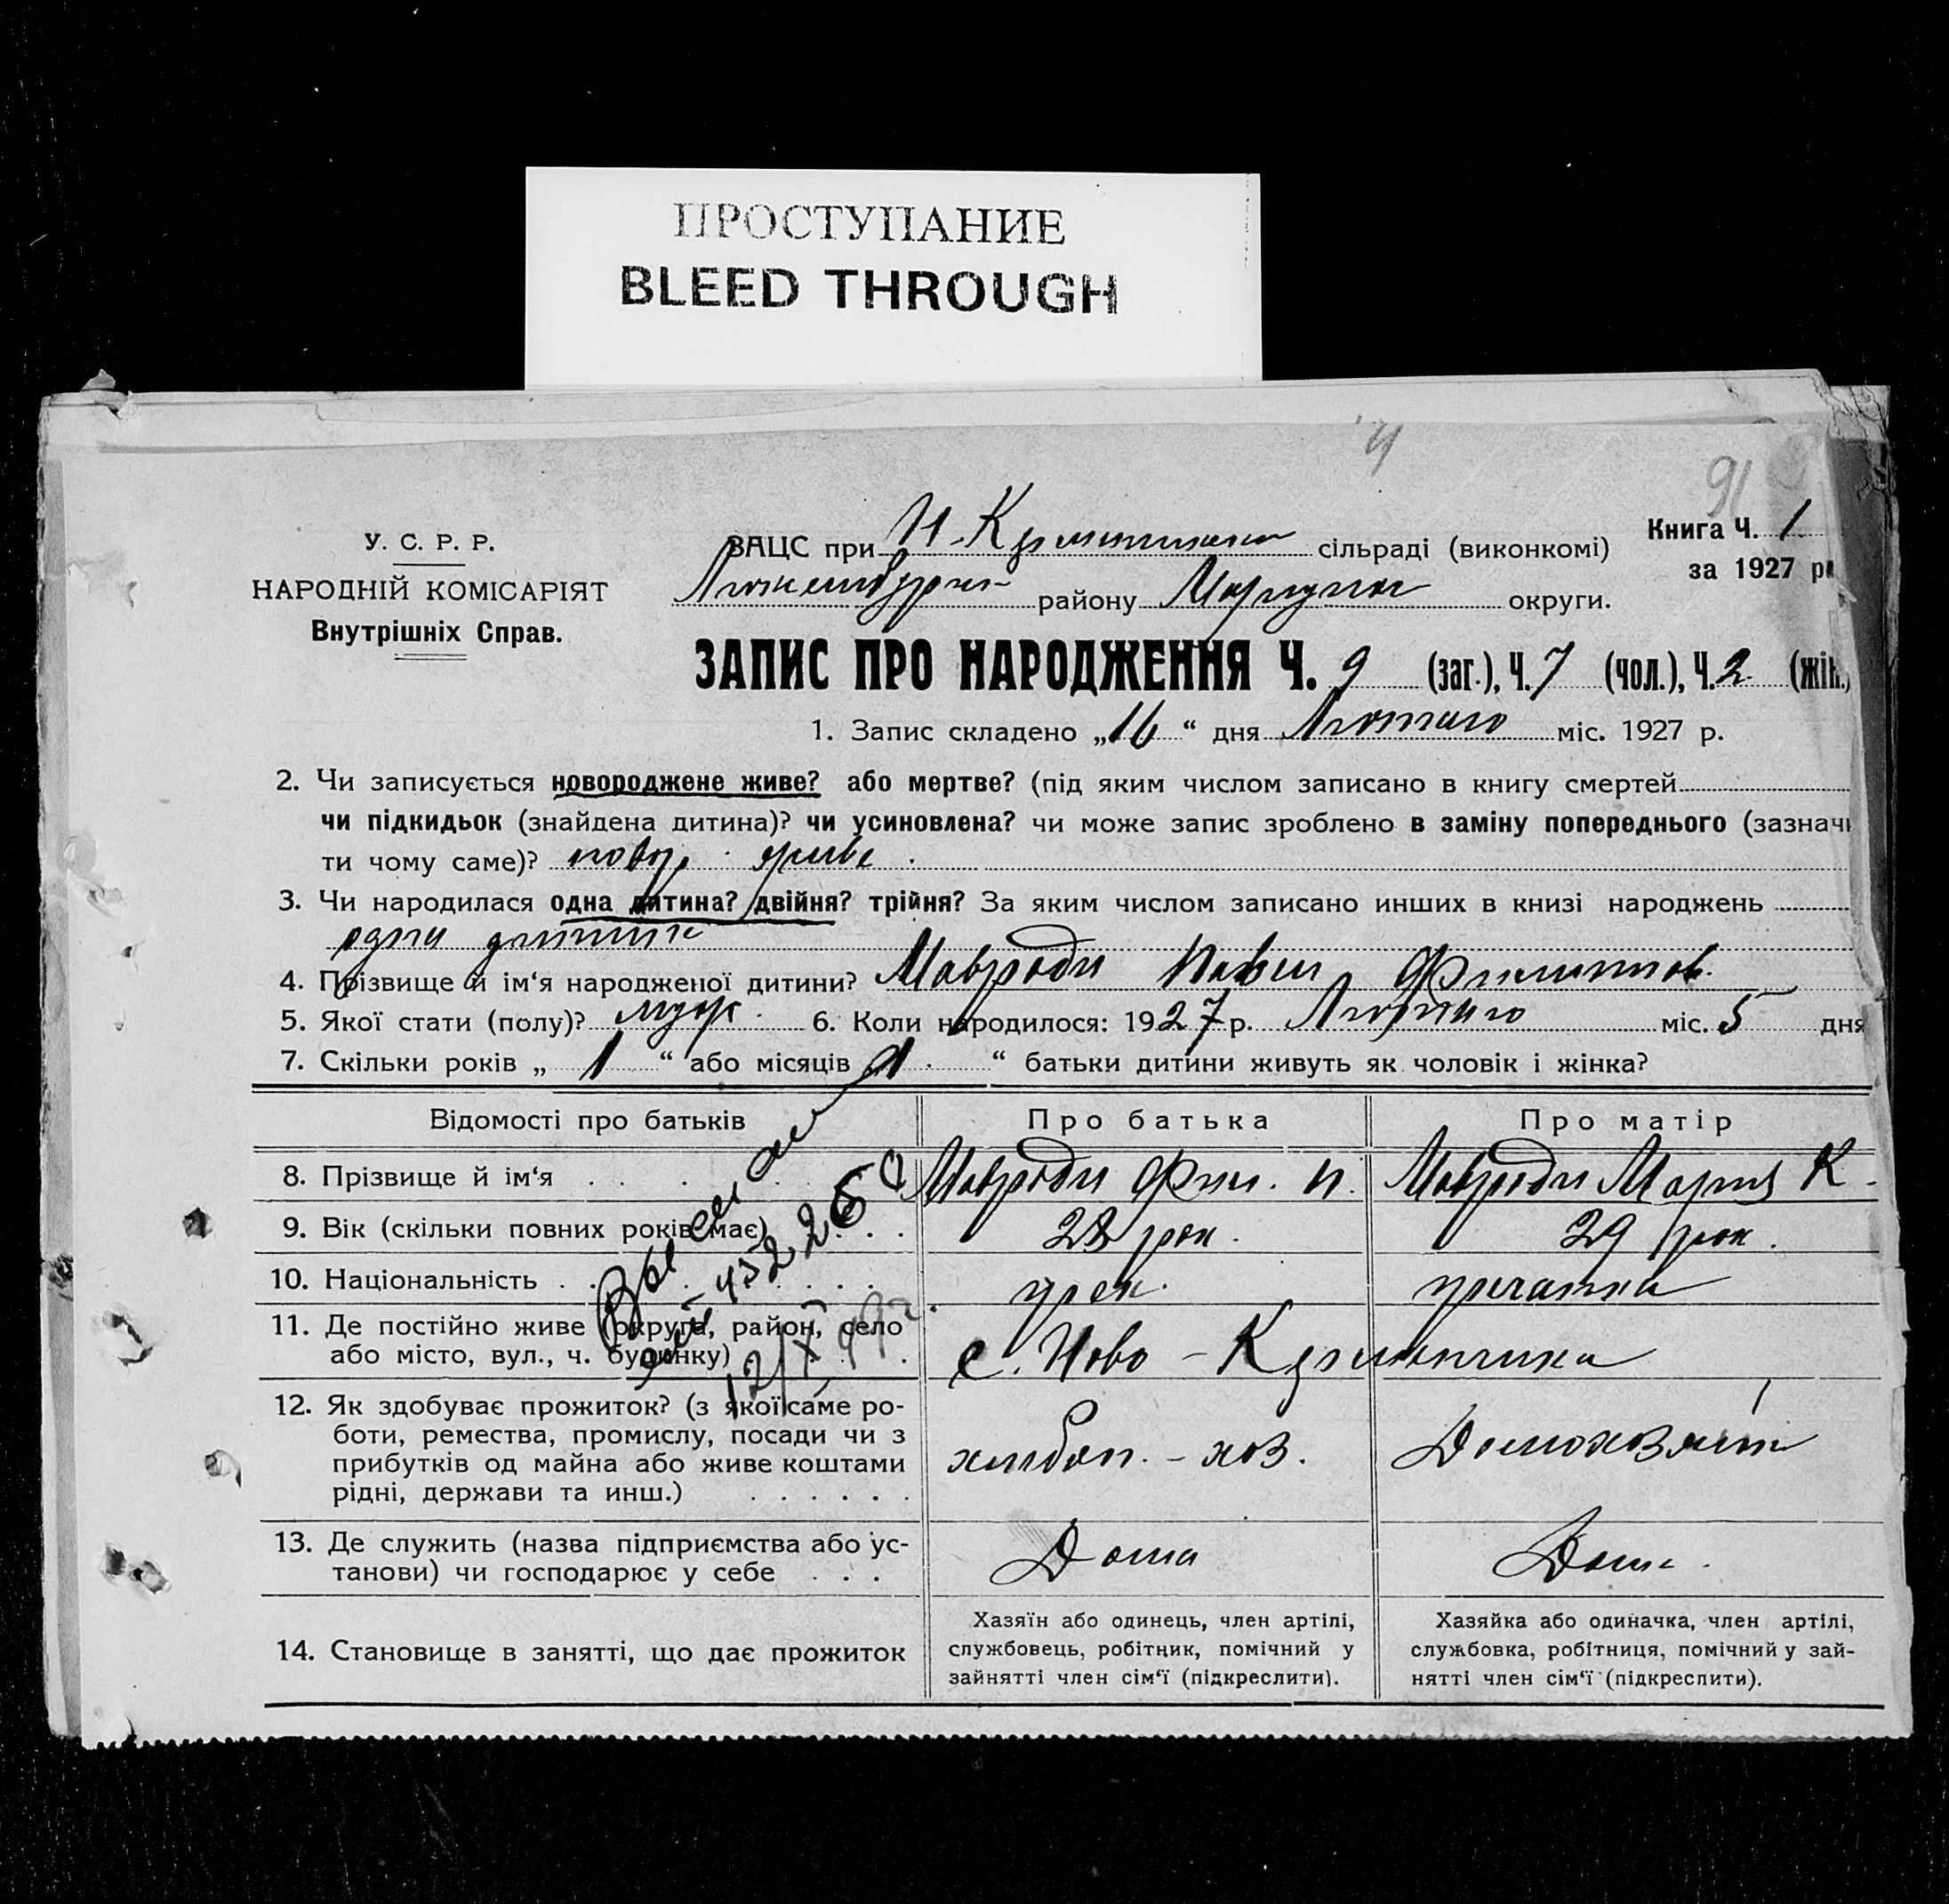 ПРОСТУПАНИЕ
BLEED THROUGH
Ч
91
У. С. Р. Р.
НАРОДНІЙ КОМІСАРІЯТ
Внутрішніх Справ.
ЗАЦС при Н-Керменчики сільраді (виконкомі)
Люксембургськ району Маріупол округи.
Книга Ч. 1
за 1927 р
ЗАПИС ПРО НАРОДЖЕННЯ Ч. 9 (заг.), Ч. 7 (чол.), Ч. 2 (жін.)
1. Запис складено „16“ дня Лютого міс. 1927 р.
2. Чи записується новороджене живе? або мертве? (під яким числом записано в книгу смертей
чи підкидьок (знайдена дитина)? чи усиновлена? чи може запис зроблено в заміну попереднього (зазначи
ти чому саме)? новор. живе.
3. Чи народилася одна дитина? двійня? трійня? За яким числом записано инших в книзі народжень
одна дитина
4. Прізвище й ім‘я народженої дитини? Мавроди Павел Филиппов.
5. Якої стати (полу)? муж. 6. Коли народилося: 1927 р. Лютого міс. 5 дня
7. Скільки років „ 1 “ або місяців „ “ батьки дитини живуть як чоловік і жінка?
Відомості про батьків Про батька Про матір
8. Прізвище й ім‘я . . . Мавроди Фил. П. Мавроди Мария К.
9. Вік (скільки повних років має) . . . 28 рок. 29 рок.
10. Національність . . . грек. гречанка
11. Де постійно живе (округа, район, село
або місто, вул., ч. будинку) с. Ново-Керменчики
12. Як здобуває прожиток? (з якої саме ро-
боти, ремества, промислу, посади чи з
прибутків од майна або живе коштами
рідні, держави та инш.) . . . . . . хлібоп. - хоз. Домохозяйн
13. Де служить (назва підприємства або ус-
танови) чи господарює у себе . . . Дома Дома.
14. Становище в занятті, що дає прожиток
Хазяїн або одинець, член артілі,
службовець, робітник, помічний у
зайнятті член сім‘ї (підкреслити).
Хазяйка або одиначка, член артілі,
службовка, робітниця, помічний у зай-
нятті член сім‘ї (підкреслити).
452260